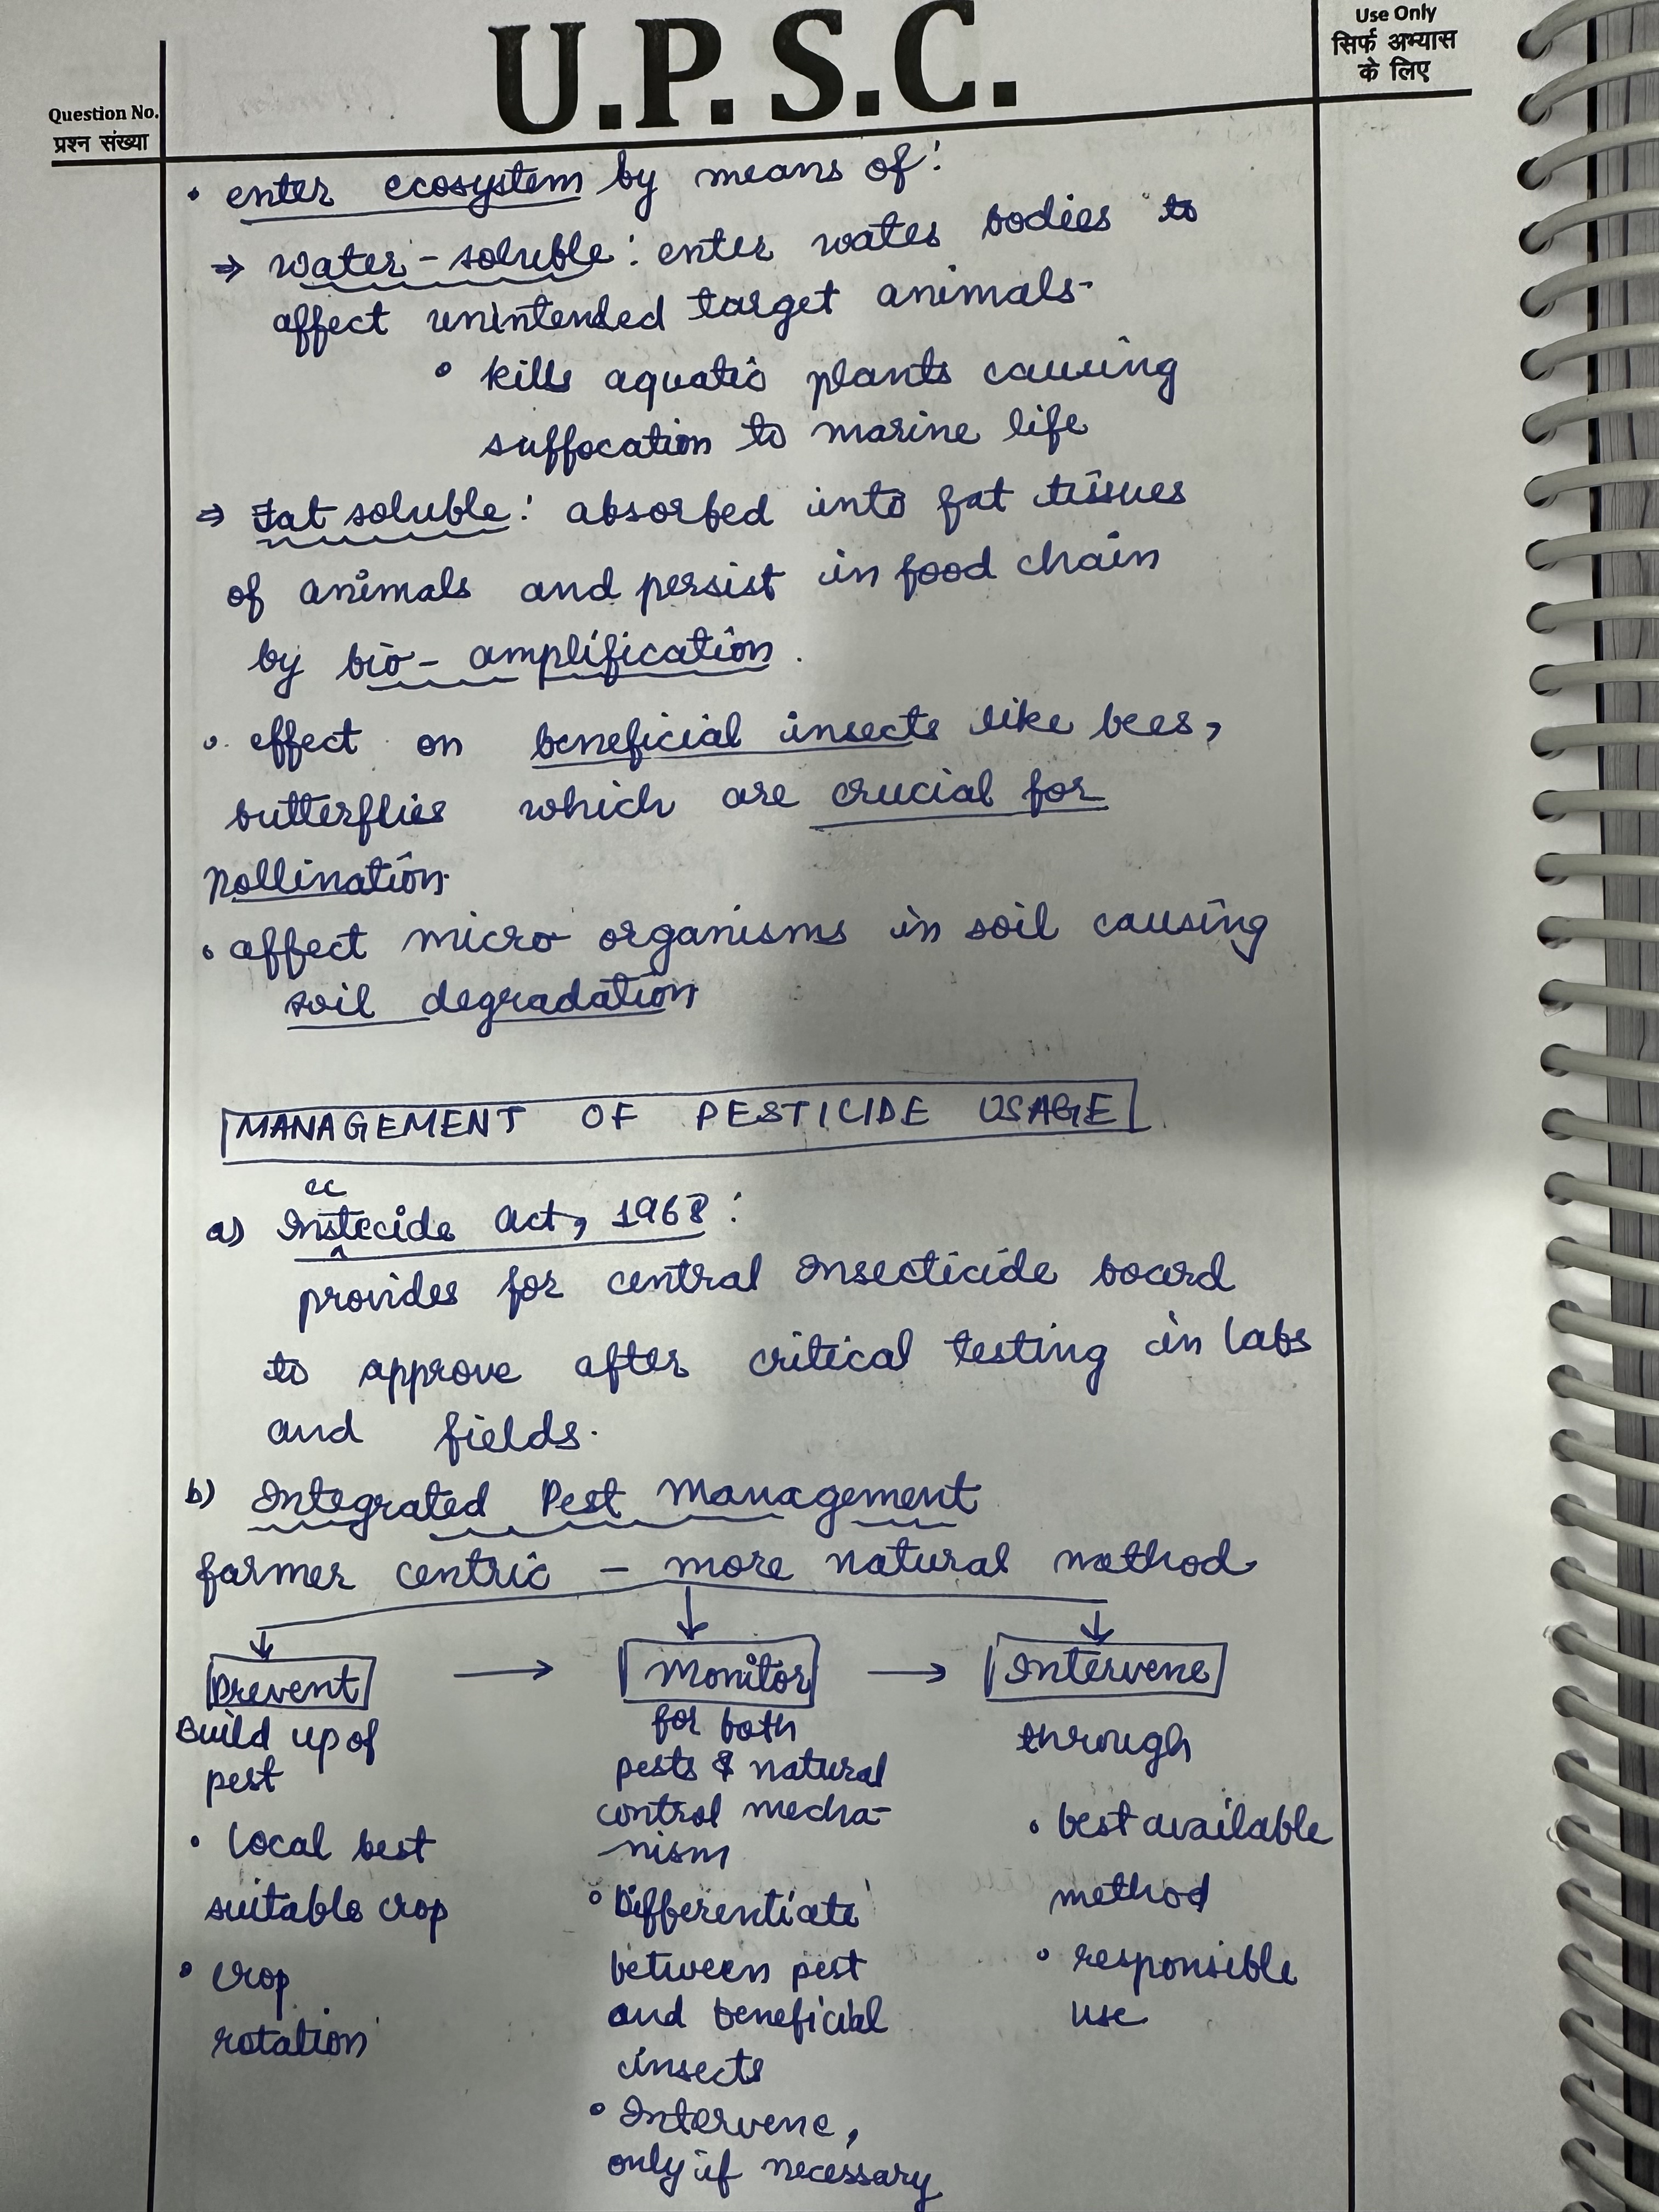 U.P.S.C.
Use Only
सिर्फ अभ्यास
के लिए
Question No.
प्रश्न संख्या
• enter ecosystem by means of:
⇒ water-soluble: enter water bodies to
affect unintended target animals.
• kills aquatic plants causing
suffocation to marine life
⇒ Fat soluble: absorbed into fat tissues
of animals and persist in food chain
by bio-amplification.
• effect on beneficial insects like bees,
butterflies which are crucial for
pollination.
• affect micro organisms in soil causing
soil degradation
MANAGEMENT OF PESTICIDE USAGE
ec
a) Instecide Act, 1968:
provides for central Insecticide board
to approve after critical testing in labs
and fields.
b) Integrated Pest Management
farmer centric – more natural method
Prevent → Monitor → Intervene
Build up of
pest
• Local best
suitable crop
• crop
rotation
for both
pests & natural
control mecha-
nism
• Differentiate
between pest
and beneficial
insects
• Intervene,
only if necessary
through
• best available
method
• responsible
use